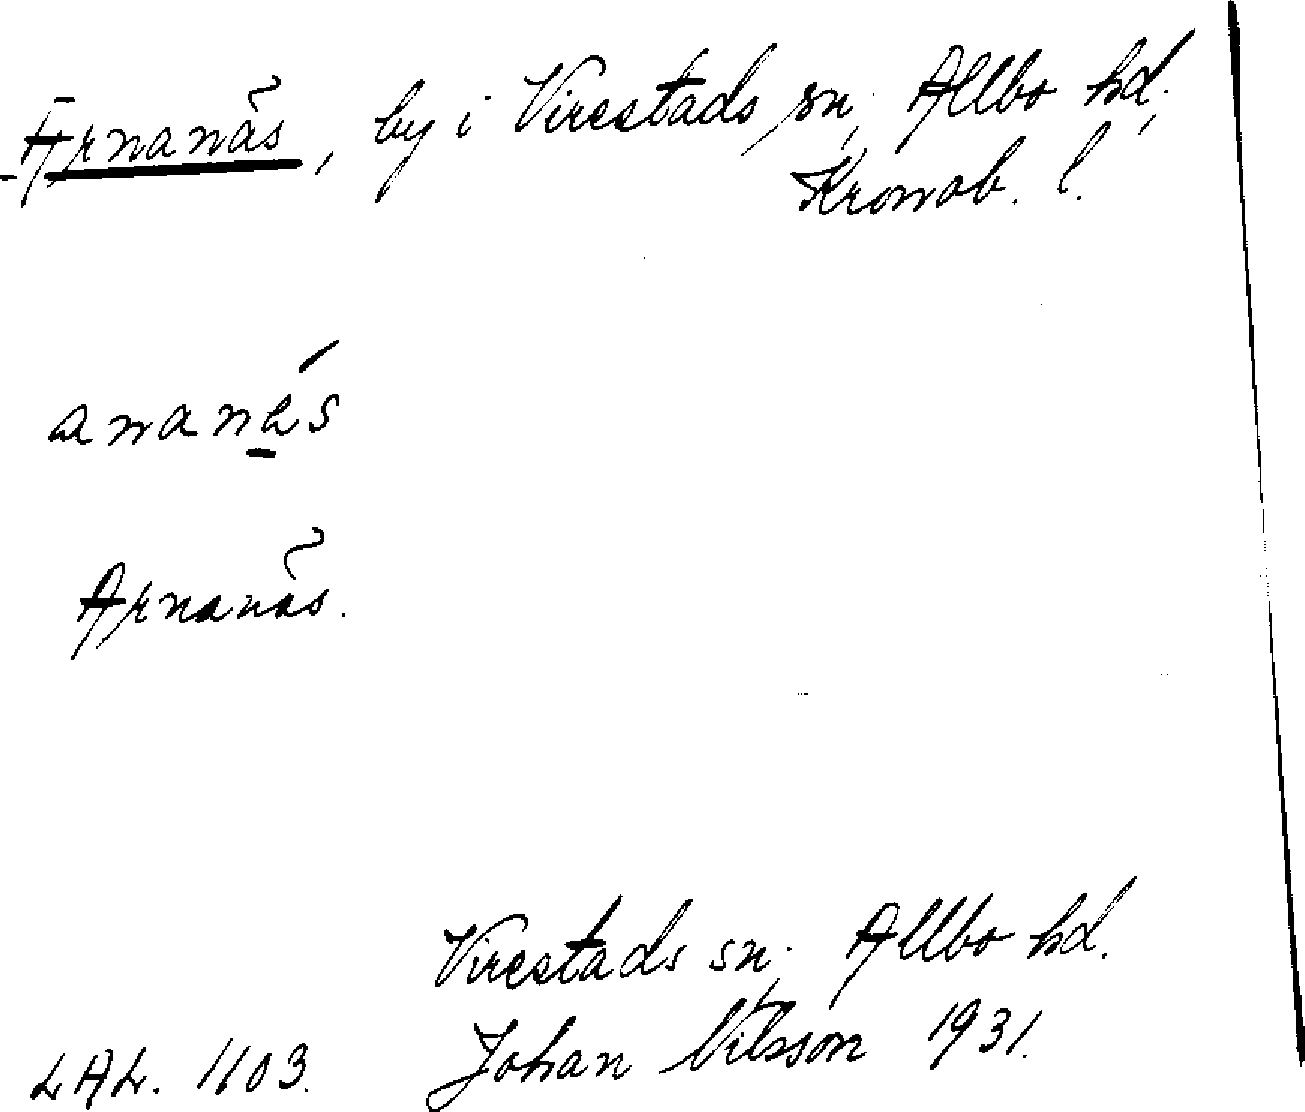 Arnanäs, by i Virestads sn, Allbo hd,
Kronob. l.
ananä́s
Arnanäs.
Virestads sn, Allbo hd.
LAL. 1103. Johan Nilsson 1931.